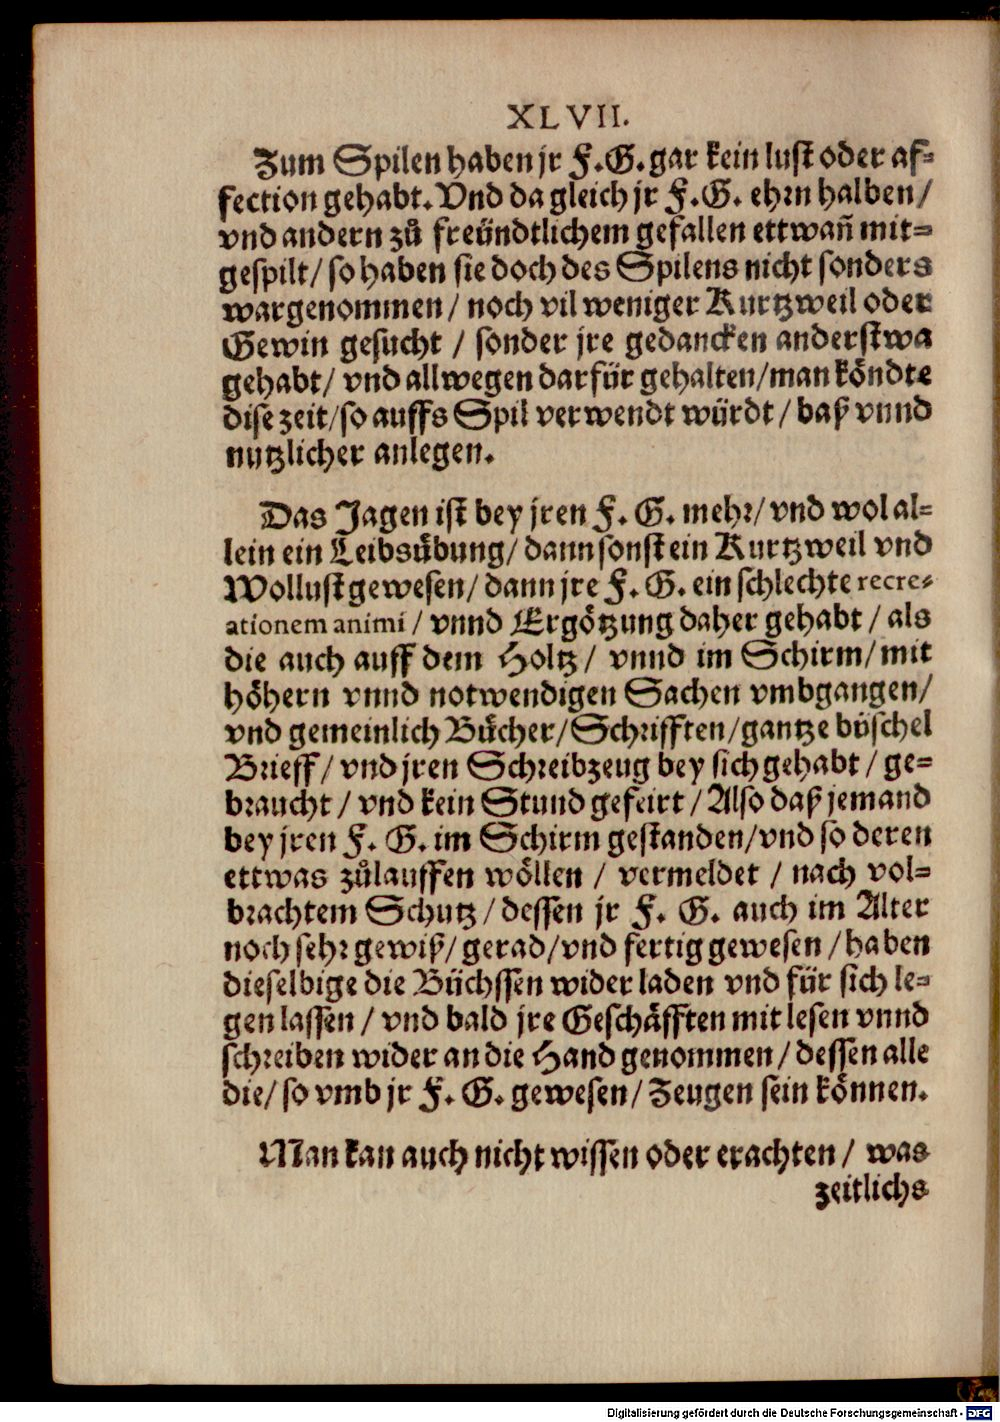 XLVII.
Zum Spilen haben jr F. G. gar kein lust oder af-
fection gehabt. Vnd da gleich jr F. G. ehrn halben /
vnd andern zů freündtlichem gefallen ettwañ mit-
gespilt / so haben sie doch des Spilens nicht sonders
wargenommen / noch vil weniger Kurtzweil oder
Gewin gesucht / sonder jre gedancken anderstwa
gehabt / vnd allwegen darfür gehalten / man köndte
dise zeit / so auffs Spil verwendt würdt / baß vnnd
nutzlicher anlegen.
Das Jagen ist bey jren F. G. mehr / vnd wol al-
lein ein Leibsübung / dann sonst ein Kurtzweil vnd
Wollust gewesen / dann jre F. G. ein schlechte recre-
ationem animi / vnnd Ergötzung daher gehabt / als
die auch auff dem Holtz / vnnd im Schirm / mit
höhern vnnd notwendigen Sachen vmbgangen /
vnd gemeinlich Bücher / Schrifften / gantze büschel
Brieff / vnd jren Schreibzeug bey sich gehabt / ge-
braucht / vnd kein Stund gefeirt / Also daß jemand
bey jren F. G. im Schirm gestanden / vnd so deren
ettwas zůlauffen wöllen / vermeldet / nach vol-
brachtem Schutz / dessen jr F. G. auch im Alter
noch sehr gewiß / gerad / vnd fertig gewesen / haben
dieselbige die Büchssen wider laden vnd für sich le-
gen lassen / vnd bald jre Geschäfften mit lesen vnnd
schreiben wider an die Hand genommen / dessen alle
die / so vmb jr F. G. gewesen / Zeugen sein können.
Man kan auch nicht wissen oder erachten / was
zeitlichs
Digitalisierung gefördert durch die Deutsche Forschungsgemeinschaft - DFG